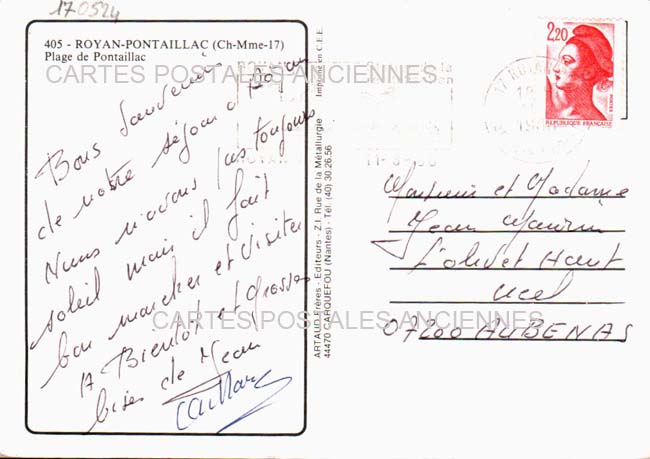 170524
405 - ROYAN-PONTAILLAC (Ch-Mme-17)
Plage de Pontaillac
CARTES POSTALES ANCIENNES
Bons Souvenirs
de notre séjour à Royan
Nous n'avons pas toujours
soleil mais il fait
bon marcher et visiter
A Bientôt et grosses
bises de Jean
Imprimé en C.E.E.
ARTAUD Frères - Editeurs - Z.I. Rue de la Métallurgie
44470 CARQUEFOU (Nantes) - Tél. (40) 30.26.56
2,20
POSTES
REPUBLIQUE FRANÇAISE
17 ROYAN
ROYAN
Monsieur et Madame
Jean
L'olivet Haut
Ucel
07200 AUBENAS
CARTES POSTALES ANCIENNES